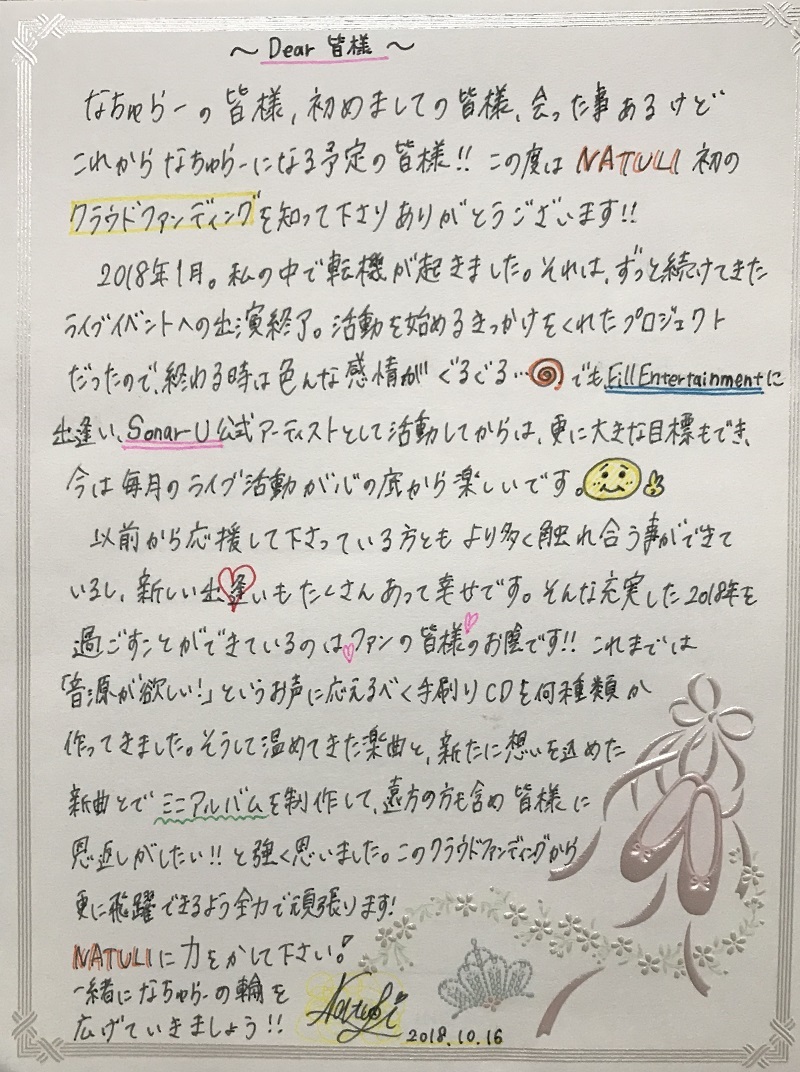 〜 Dear 皆様 〜
なちゅらーの皆様、初めましての皆様、会った事あるけど
これからなちゅらーになる予定の皆様!! この度は NATULI 初の
クラウドファンディングを知って下さりありがとうございます!!
2018年1月。私の中で転機が起きました。それは、ずっと続けてきた
ライブイベントへの出演終了。活動を始めるきっかけをくれたプロジェクト
だったので、終わる時は色んな感情がぐるぐる… でも、Fill Entertainmentに
出逢い、Sonar-U公式アーティストとして活動してからは、更に大きな目標もでき、
今は毎月のライブ活動が心の底から楽しいです。
以前から応援して下さっている方ともより多く触れ合う事ができて
いるし、新しい出逢いもたくさんあって幸せです。そんな充実した2018年を
過ごすことができているのはファンの皆様のお陰です!! これまでは
「音源が欲しい!」というお声に応えるべく手刷りCDを何種類か
作ってきました。そうして温めてきた楽曲と、新たに想いを込めた
新曲とでミニアルバムを制作して、遠方の方も含め皆様に
恩返しがしたい!! と強く思いました。このクラウドファンディングから
更に飛躍できるよう全力で頑張ります!
NATULIに力をかして下さい!
一緒になちゅらーの輪を
広げていきましょう!!
Natuli
2018.10.16